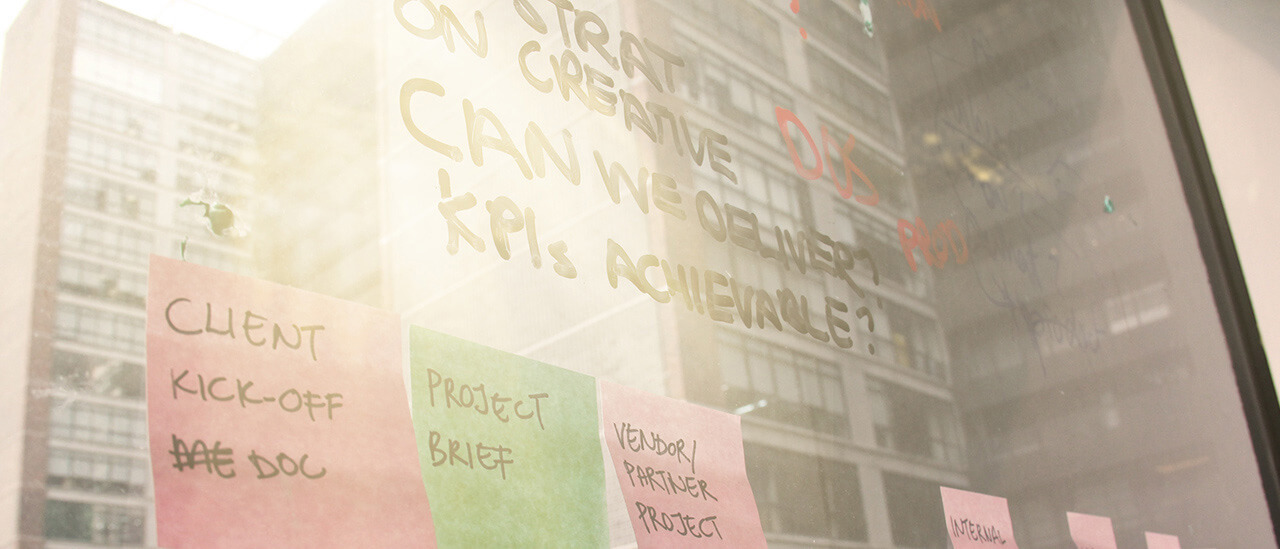 ON STRAT
CREATIVE
CAN WE DELIVER?
KPIs ACHIEVABLE?
DOCS
PROD
CLIENT
KICK-OFF
DOC
PROJECT
BRIEF
VENDOR/
PARTNER
PROJECT
INTERNAL